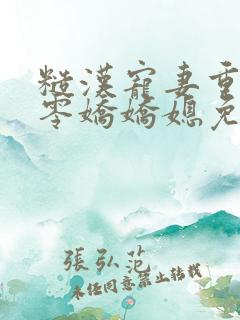 糙漢寵妻重
零嬌嬌媳免
張弘范
未經同意禁止轉載